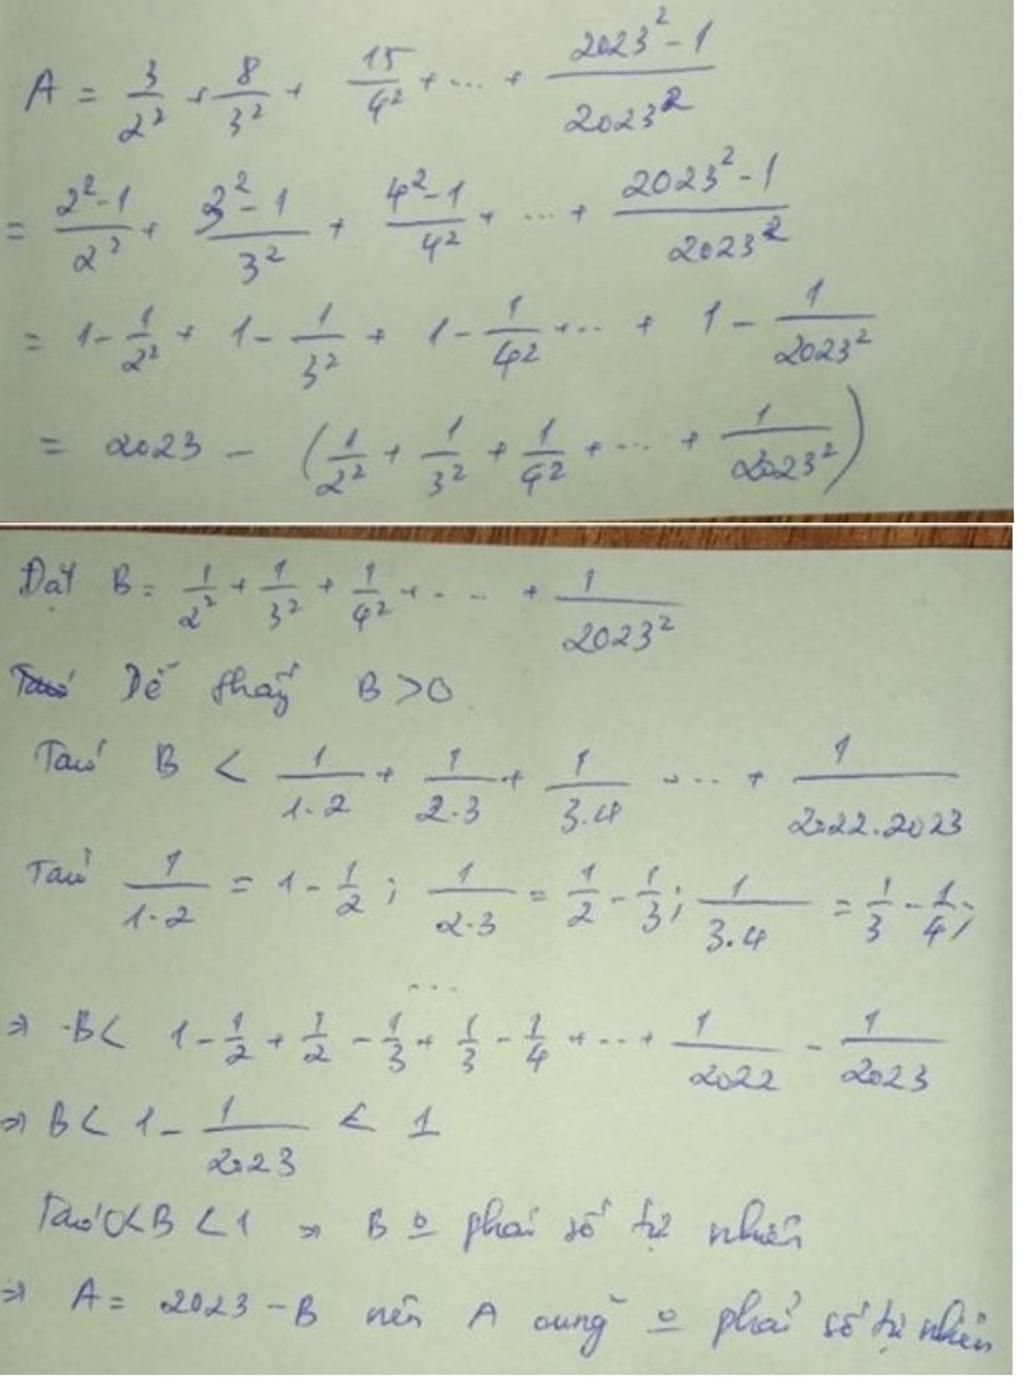 A = 3/2² + 8/3² + 15/4² + ... + (2023² - 1)/2023²
= (2² - 1)/2² + (3² - 1)/3² + (4² - 1)/4² + ... + (2023² - 1)/2023²
= 1 - 1/2² + 1 - 1/3² + 1 - 1/4² + ... + 1 - 1/2023²
= 2023 - (1/2² + 1/3² + 1/4² + ... + 1/2023²)
Đặt B = 1/2² + 1/3² + 1/4² + ... + 1/2023²
Dễ thấy B > 0
Ta có B < 1/1.2 + 1/2.3 + 1/3.4 + ... + 1/2022.2023
Ta có 1/1.2 = 1 - 1/2 ; 1/2.3 = 1/2 - 1/3 ; 1/3.4 = 1/3 - 1/4 ;
...
⇒ B < 1 - 1/2 + 1/2 - 1/3 + 1/3 - 1/4 + ... + 1/2022 - 1/2023
⇒ B < 1 - 1/2023 < 1
Ta có 0 < B < 1 ⇒ B o phải số tự nhiên
⇒ A = 2023 - B nên A cũng o phải số tự nhiên